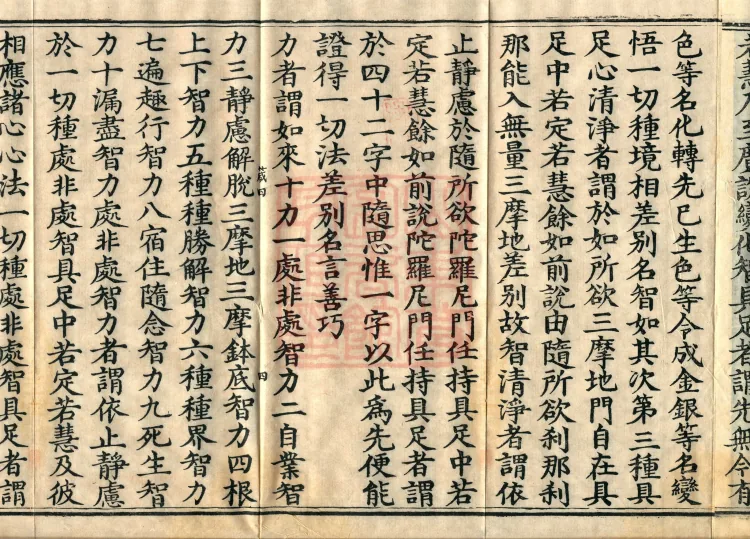 智具足者謂先無今有
色等名化轉先已生色等令成金銀等名變
悟一切種境相差別名智如其次第三種具
足心清淨者謂於如所欲三摩地門自在具
足中若定若慧餘如前說由隨所欲剎那剎
那能入無量三摩地差別故智清淨者謂依
止靜慮於隨所欲陀羅尼門任持具足中若
定若慧餘如前說陀羅尼門任持具足者謂
於四十二字中隨思惟一字以此爲先便能
證得一切法差別名言善巧
力者謂如來十力一處非處智力二自業智
四
力三靜慮解脫三摩地三摩鉢底智力四根
上下智力五種種勝解智力六種種界智力
七遍趣行智力八宿住隨念智力九死生智
力十漏盡智力處非處智力者謂依止靜慮
於一切種處非處智具足中若定若慧及彼
相應諸心心法一切種處非處智具足者謂